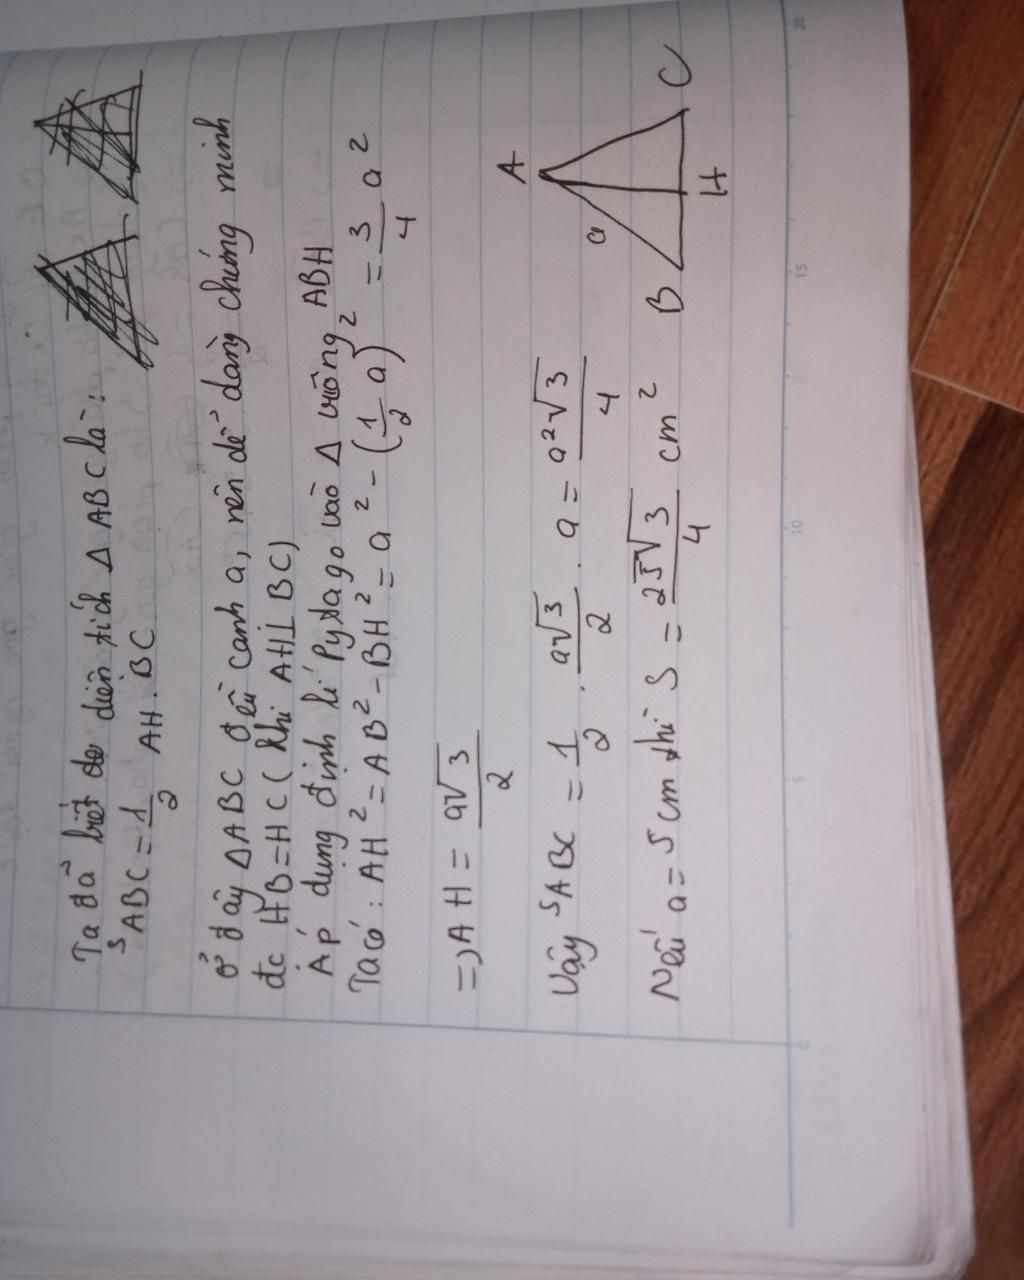 Ta đã biết diện tích Δ ABC là:
S ABC = 1/2 AH. BC
ở đây ΔABC đều cạnh a, nên dễ dàng chứng minh
đc HB=HC (khi AH⊥BC)
Áp dụng định lí Pytago vào Δ vuông ABH
Ta có: AH² = AB² - BH² = a² - (1/2 a)² = 3/4 a²
=> AH = a√3/2
Vậy S ABC = 1/2 . a√3/2 . a = a²√3/4
Nếu a = 5cm thì S = 25√3/4 cm²
A
a
B
H
C
0
5
10
15
20